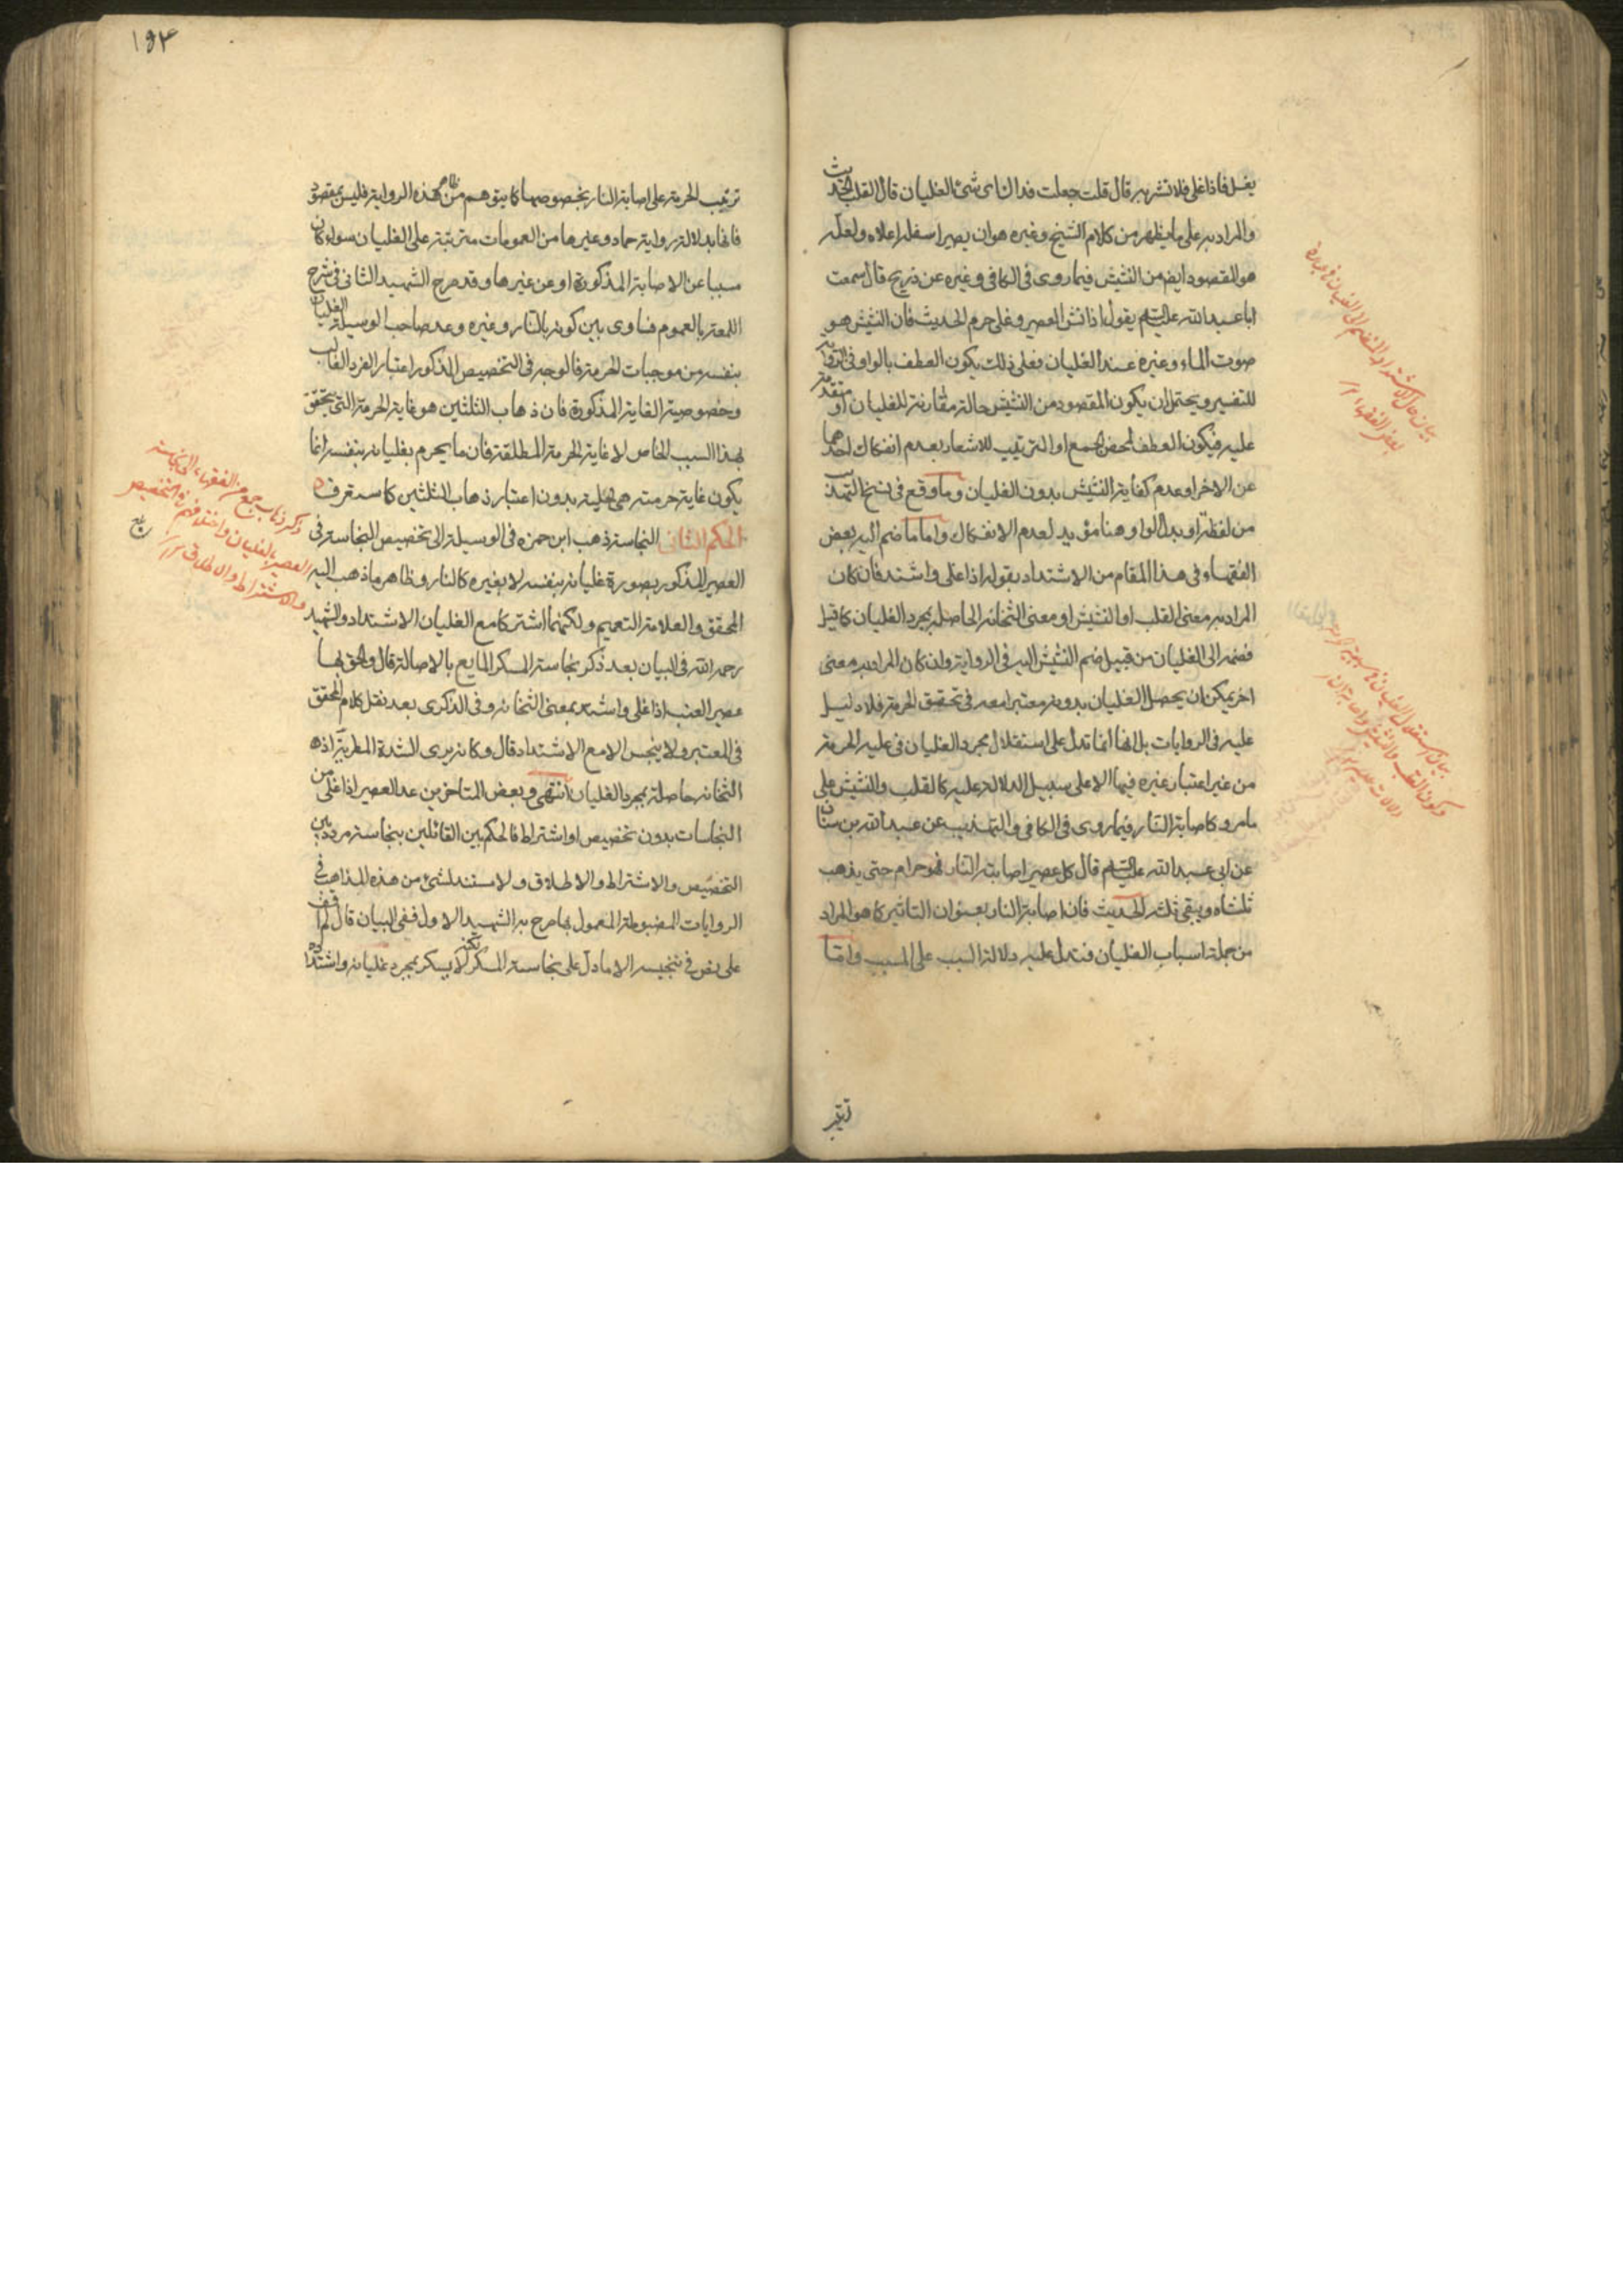 يغل فاذا غلى فلا تشربه قال قلت جعلت فداك اى شئ الغليان قال القلب الحديث
والمراد به على ما يظهر من كلام الشيخ وغيره هو ان يصير اسفله اعلاه ولعله
هو المقصود ايضا من النشيش فيما روى فى الكافى وغيره عن ذريح قال سمعت
ابا عبد الله عليه السلام يقول اذا نش العصير وغلى حرم الحديث فان النشيش هو
صوت الماء وغيره عند الغليان فعلى ذلك يكون العطف بالواو فى الرواية
للتفسير ويحتمل ان يكون المقصود من النشيش حالة مقارنة للغليان او متقدمة
عليه فيكون العطف لمحض الجمع او الترتيب للاشعار بعدم انفكاك احدهما
عن الاخر او عدم كفاية النشيش بدون الغليان وما وقع فى نسخ التهذيب
من لفظة او بدل الواو وهنا مؤيد لعدم الانفكاك واما ما ضم اليه بعض
الفقهاء فى هذا المقام من الاشتداد بقوله اذا غلى واشتد فان كان
المراد به معنى القلب او النشيش او معنى الثخانة الحاصلة بمجرد الغليان كما قيل
فضمه الى الغليان من قبيل ضم النشيش اليه فى الرواية وان كان المراد به معنى
اخر يمكن ان يحصل الغليان بدونه معتبرا معه فى تحقيق الحرمة فلا دليل
عليه فى الروايات بل انها انما تدل على استقلال مجرد الغليان فى علية الحرمة
من غير اعتبار غيره فيها الا على سبيل الدلالة عليه كالقلب والنشيش على
ما مر وكاصابة النار فيما روى فى الكافى والتهذيب عن عبد الله بن سنان
عن ابى عبد الله عليه السلام قال كل عصير اصابته النار فهو حرام حتى يذهب
ثلثاه ويبقى ثلثه الحديث فان اصابة النار بعنوان التاثير كما هو المراد
من جملة اسباب الغليان فتدل عليه دلالة السبب على المسبب واما
ترتيب
بيان حال الاشتداد المنضم الى الغليان فى عبارة
بعض الفقهاء
بيان استقلال الغليان فى سببية الحرمة
وكون القلب والنشيش واصابة النار
دلالات عليه
١٩٣
ترتيب الحرمة على اصابة النار بخصوصها كما يتوهم من ظاهر هذه الرواية فليس بمقصود
فانها بدلالة رواية حماد وغيرها من العمومات مترتبة على الغليان سواء كان
مسببا عن الاصابة المذكورة او عن غيرها وقد صرح الشهيد الثانى فى شرح
اللمعة بالعموم فساوى بين كونه بالنار وغيره وعد صاحب الوسيلة الغليان
بنفسه من موجبات الحرمة فالوجه فى التخصيص المذكور اعتبار الفرد الغالب
وخصوصية الغاية المذكورة فان ذهاب الثلثين هو غاية الحرمة التى تتحقق
بهذا السبب الخاص لا غاية الحرمة المطلقة فان ما يحرم بغليانه بنفسه انما
يكون غاية حرمته هى بدون اعتبار ذهاب الثلثين كما ستعرف
الحكم الثانى النجاسة ذهب ابن حمزه فى الوسيلة الى تخصيص النجاسة فى
العصير المذكور بصورة غليانه بنفسه لا بغيره كالنار وظاهر ما ذهب اليه
المحقق والعلامة التعميم ولكنهما اشتركا مع الغليان الاشتداد والشهيد
رحمه الله فى البيان بعد ذكر نجاسة المسكر المايع بالاصالة قال والحق بها
عصير العنب اذا غلى واشتد بمعنى الثخانة وفى الذكرى بعد نقل كلام المحقق
فى المعتبر ولا ينجس الا مع الاشتداد قال وكانه يرى الشدة المطربة اذ
الثخانة حاصلة بمجرد الغليان انتهى وبعض المتاخرين عد العصير اذا غلى من
النجاسات بدون تخصيص او اشتراط فالحكم بين القائلين بنجاسته مردد بين
التخصيص والاشتراط والاطلاق ولا مستند لشئ من هذه المذاهب فى
الروايات المضبوطة المعمول بها صرح به الشهيد الاول ففى البيان قال لم اقف
على نص فى تنجيسه الا ما دل على نجاسة المسكر لكنه لا يسكر بمجرد غليانه واشتداده
ذكر ذهاب جمع من الفقهاء الى نجاسة
العصير بالغليان واختلافهم فى التخصيص
والاشتراط والاطلاق